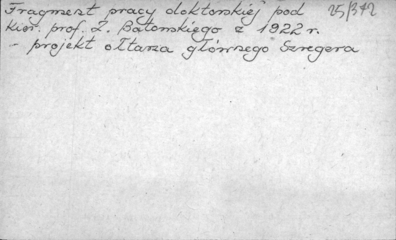 Fragment pracy doktorskiej pod 25/342
kier. prof. Z. Batowskiego z 1922 r.
- projekt ołtarza głównego Szregera